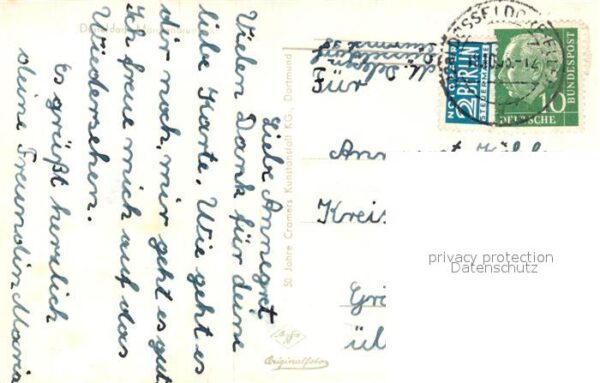 Liebe Annegret
Vielen Dank für deine
liebe Karte. Wie geht es
dir noch, mir geht es gut
Ich freue mich auf das
Wiedersehen.
Es grüßt herzlich
deine Freundin Maria
50 Jahre Cramers Kunstanstalt KG., Dortmund
Originalfoto
Für
Kreis
NOTOPFER
2 BERLIN
STEUERMARKE
10
DEUTSCHE
BUNDESPOST
privacy protection
Datenschutz